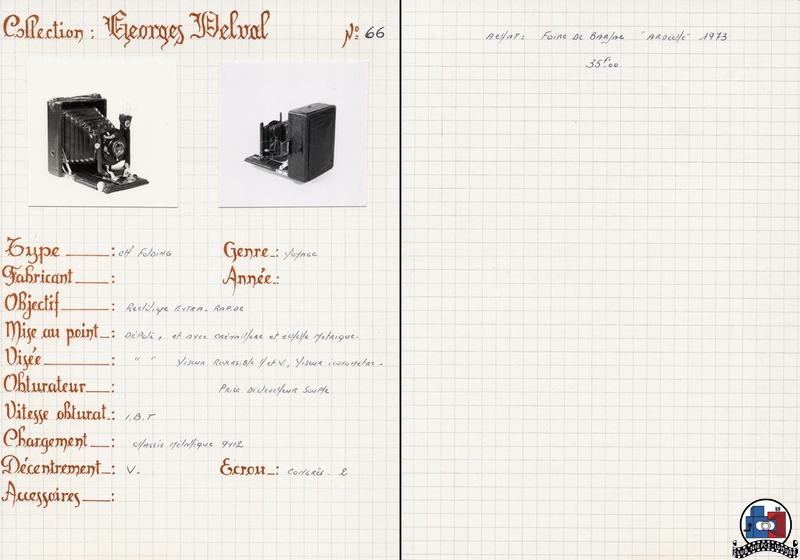 Collection : Georges Delval Nº 66
Type : CH Folding Genre : Voyage
Fabricant : Année :
Objectif : Rectiligne Extra. Rapide
Mise au point : Dépoli, et avec crémaillère et échelle métrique.
Visée : " " Viseur Réversible H et V, Viseur iconomètre.
Obturateur : Prise Déclencheur Souple
Vitesse obturat. : I.B.T
Chargement : Chassis Métallique 9x12
Décentrement : V. Ecrou : Congrès. 2
Accessoires :
Achat : Foire de Barjac "Ardèche" 1973
35F.00